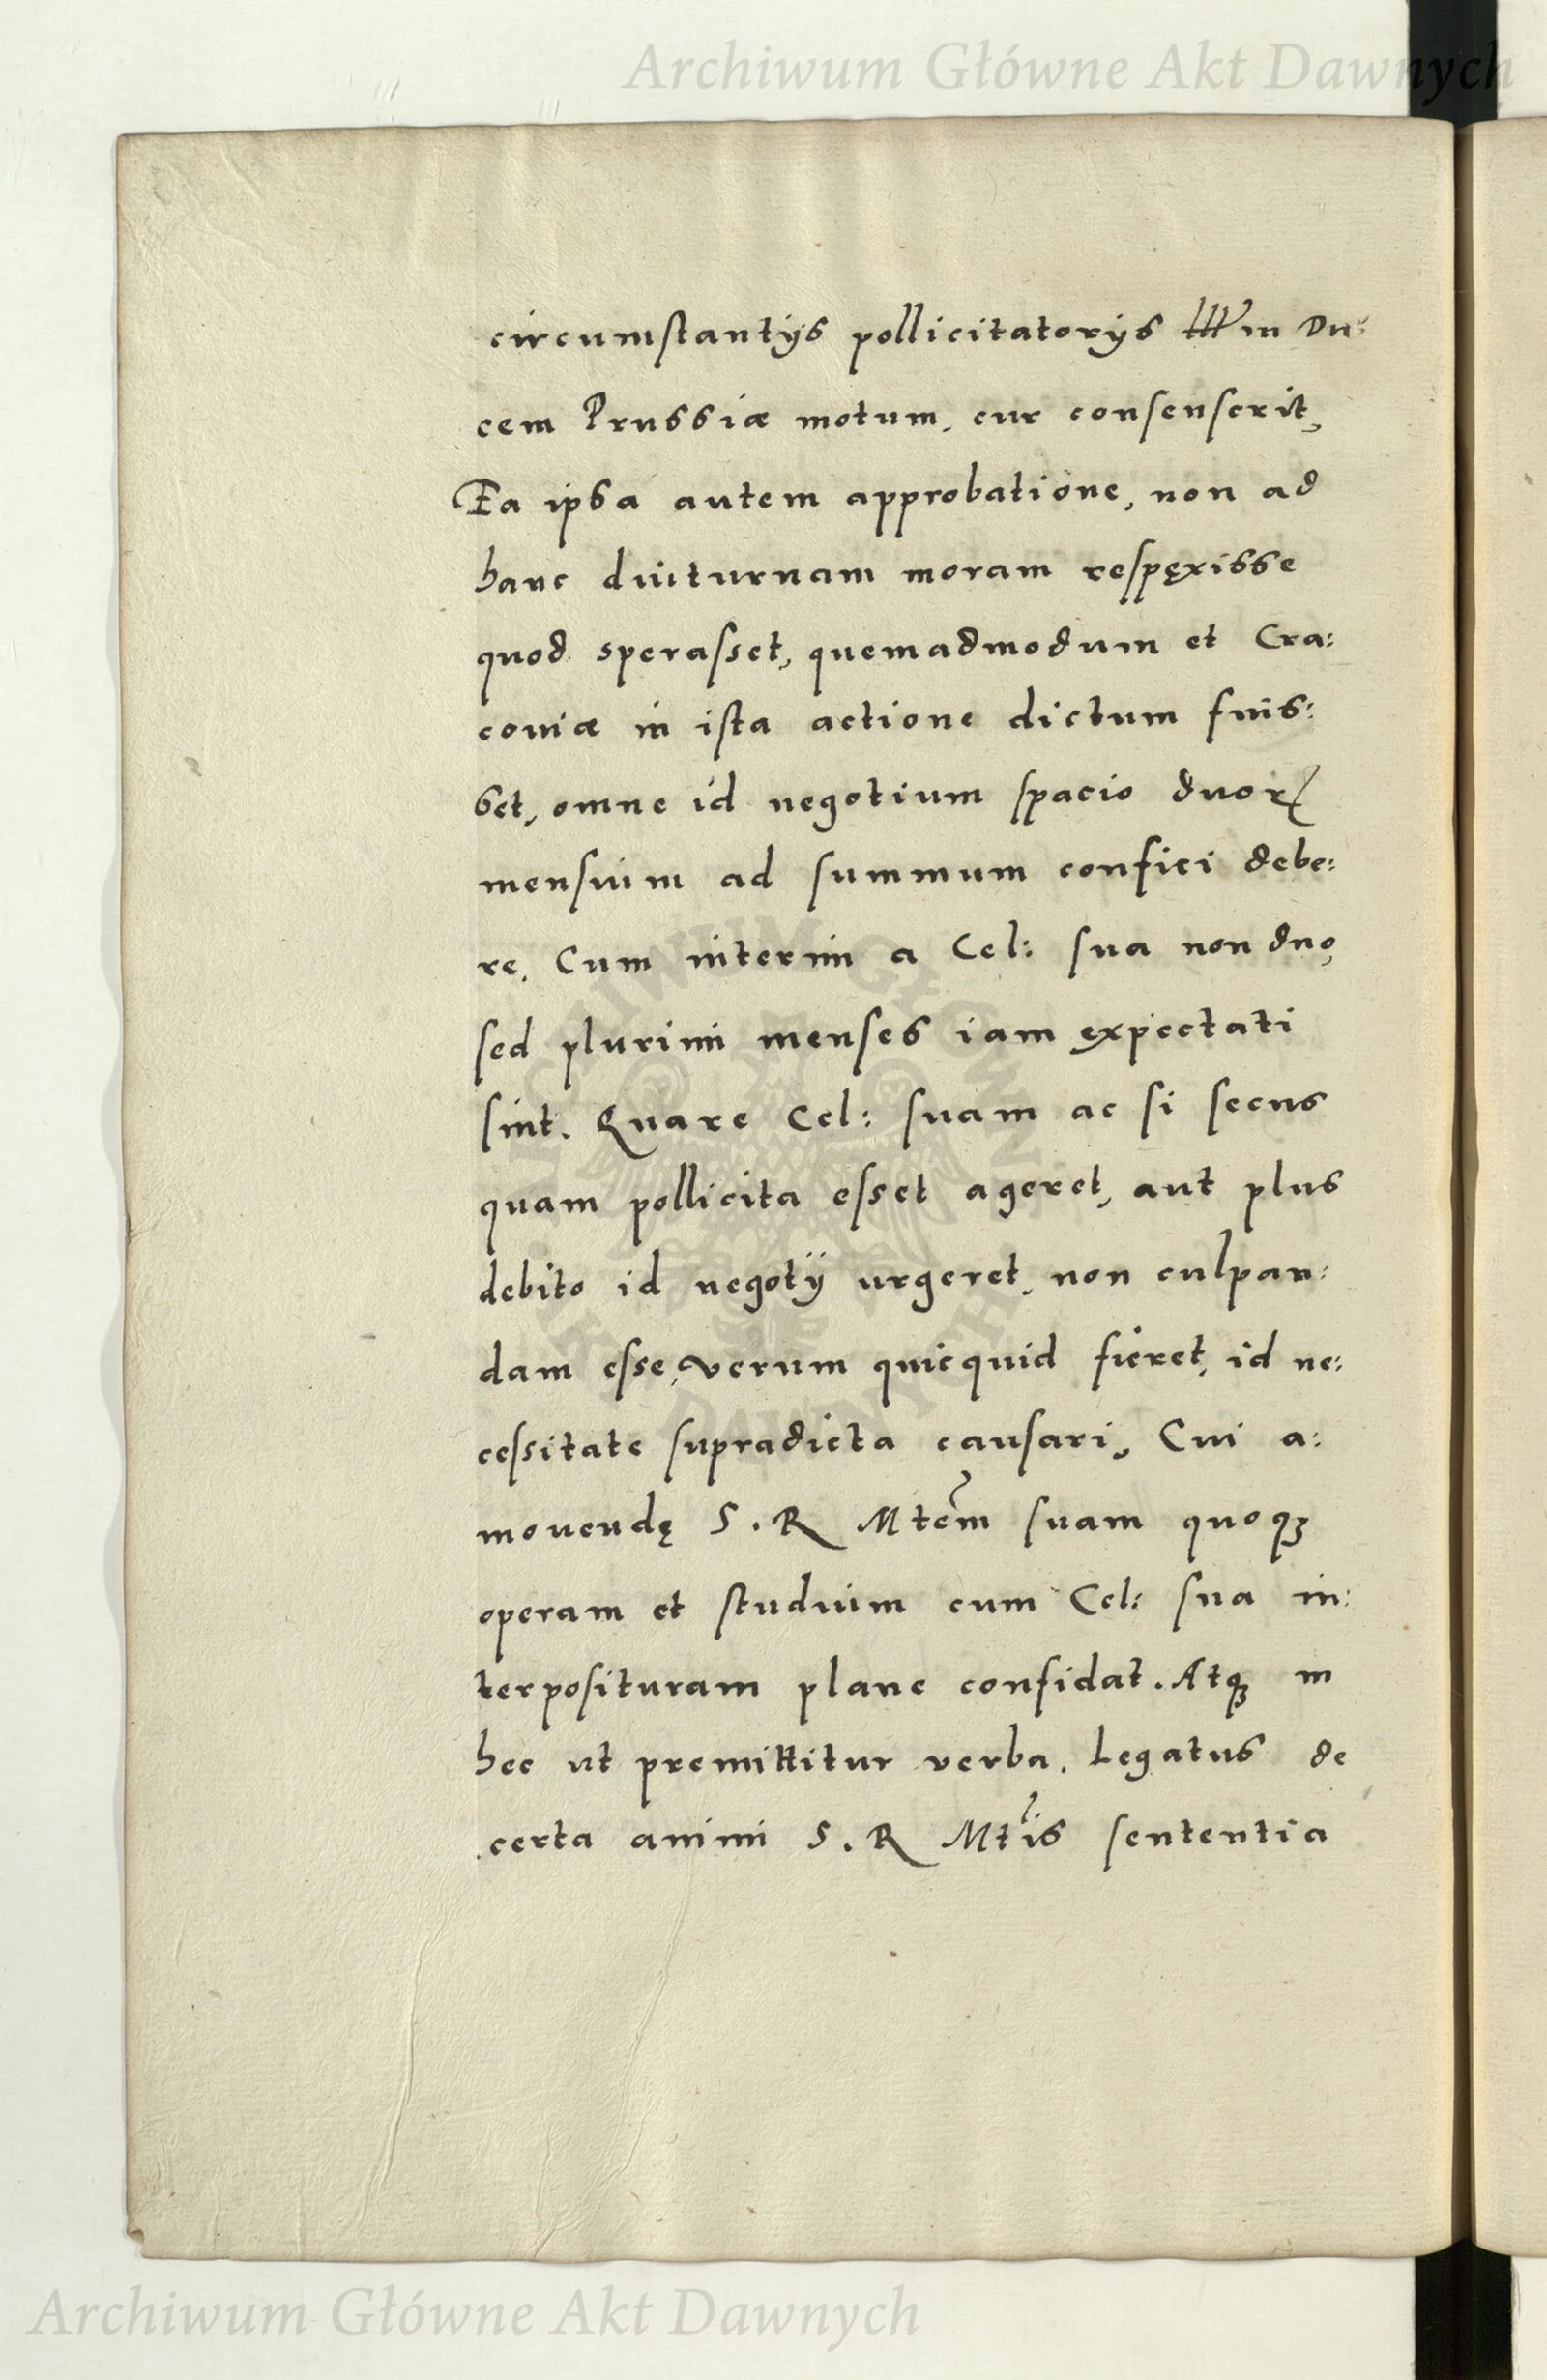 Archiwum Główne Akt Dawnych
circumstantijs pollicitatorijs Illm Du:
cem Prussiæ motum, cur consenserit,
Ea ipsa autem approbatione, non ad
hanc diuturnam moram respęxisse
quod sperasset, quemadmodum et Cra:
couiæ in ista actione dictum fuis:
set, omne id negotium spacio duorꝝ
mensium ad summum confici debe:
re. Cum interim a Cel: sua non duo,
sed plurimi menses iam expectati
sint. Quare Cel: suam ac si secus
quam pollicita esset ageret, aut plus
debito id negotij urgeret, non culpan:
dam esse, verum quicquid fieret, id ne:
cessitate supradicta causari, Cui a:
mouendę S. R Mtem̃ suam quoqꝫ
operam et studium cum Cel: sua in:
terposituram plane confidat. Atqꝫ in
hec ut premittitur verba. Legatus de
certa animi S. R Mtis̃ sententia
Archiwum Główne Akt Dawnych